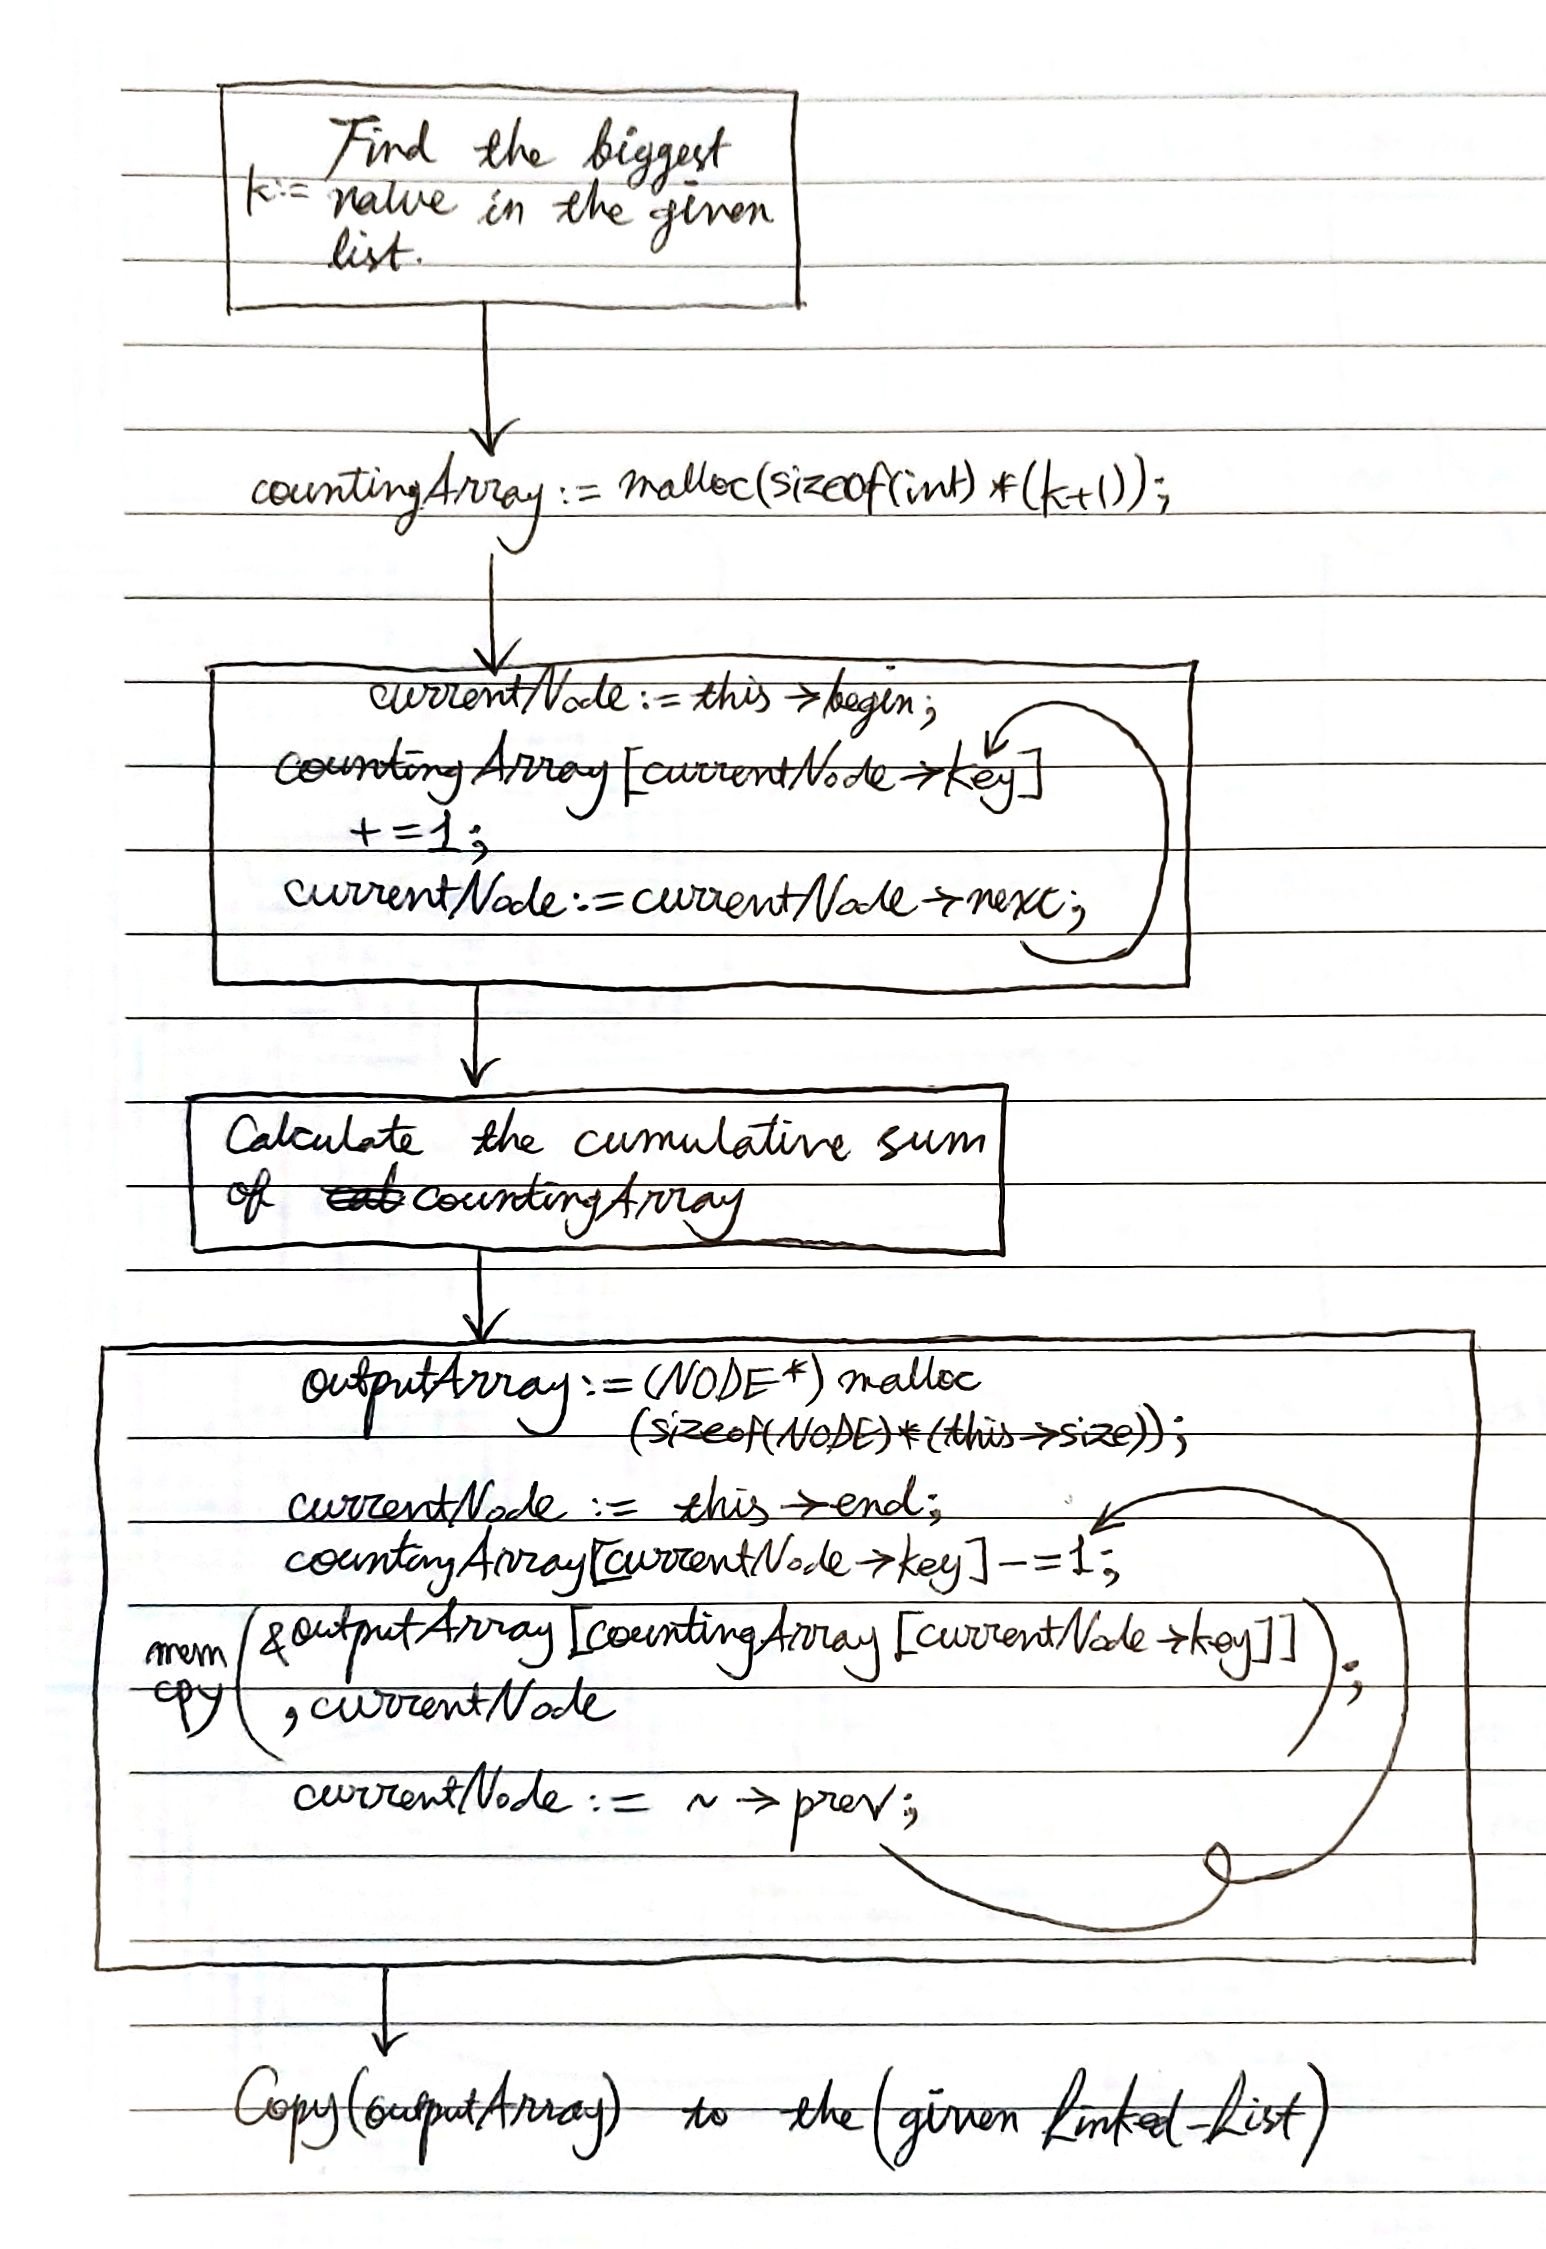 Find the biggest
k:= value in the given
list.
countingArray := malloc(sizeof(int) *(k+1));
currentNode := this →begin;
countingArray[currentNode→key]
+=1;
currentNode:=currentNode→next;
Calculate the cumulative sum
of countingArray
outputArray := (NODE*) malloc
(sizeof(NODE)*(this→size));
currentNode := this →end;
countingArray[currentNode→key] -=1;
mem
cpy
( &outputArray [countingArray [currentNode→key]]
, currentNode );
currentNode := ~ → prev;
Copy(outputArray) to the (given Linked-List)